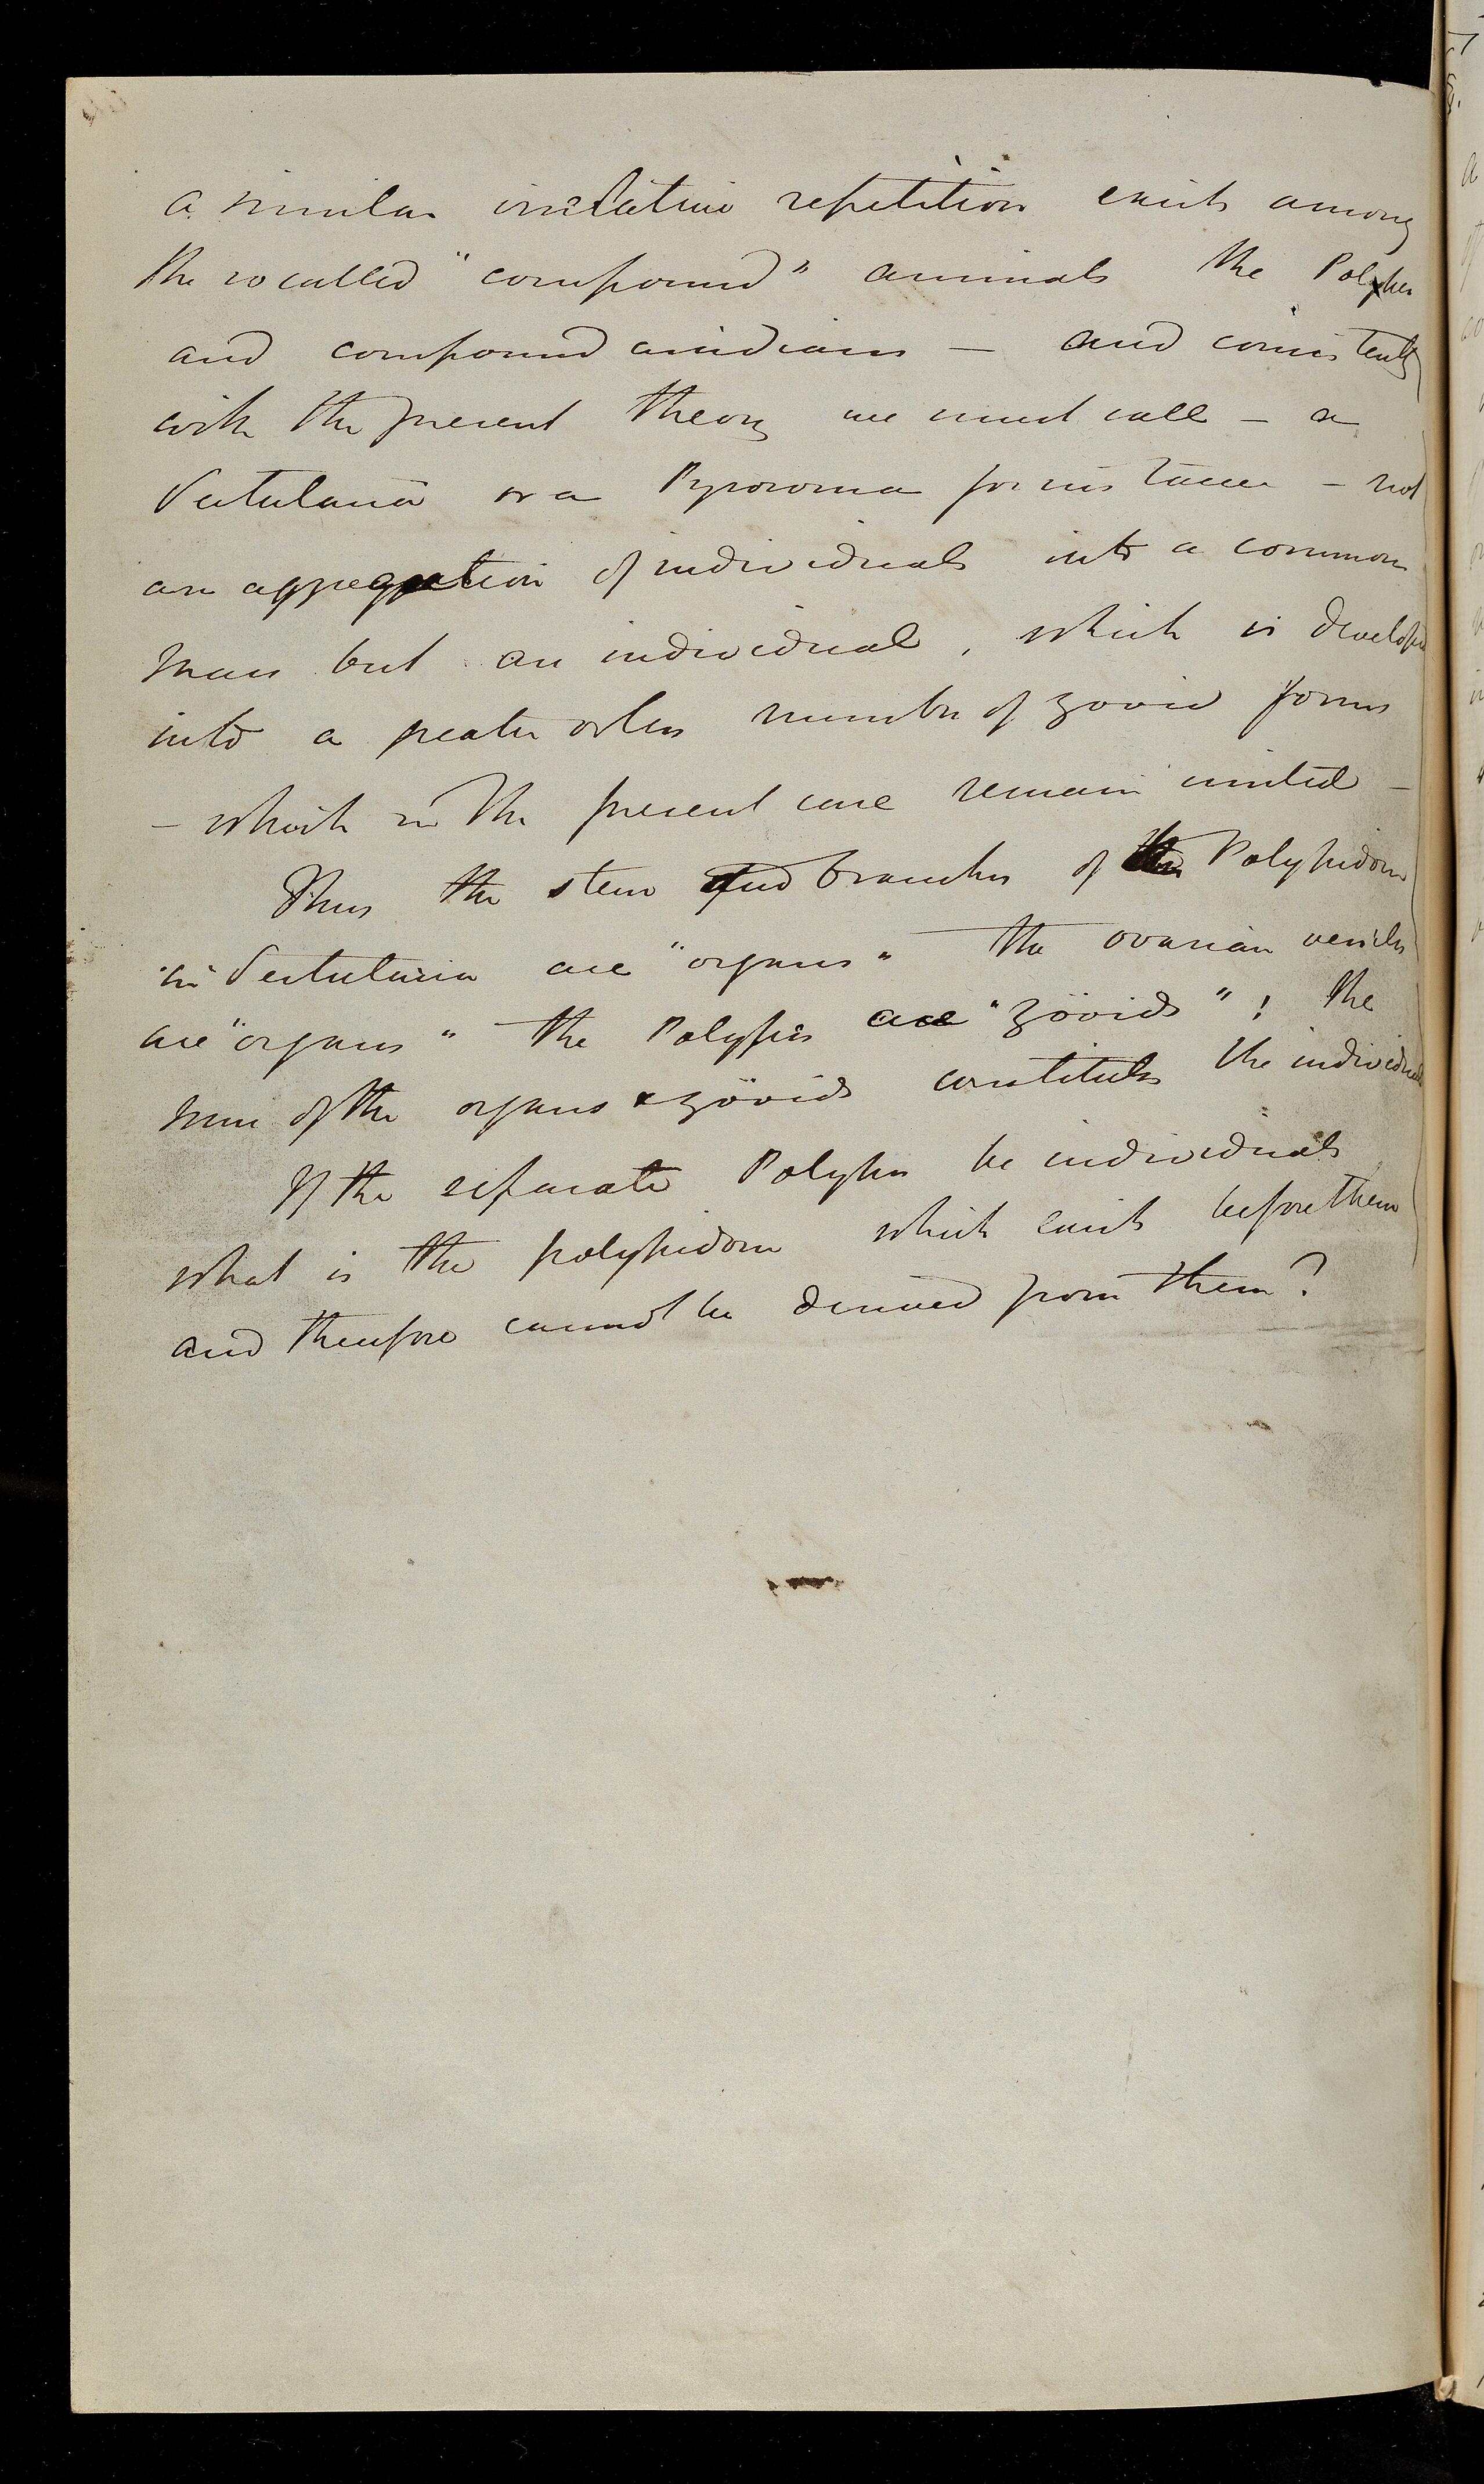 a similar irrelative repetition exists among
the so called "compound" animals the Polypes
and compound ascidians — and consistently
with the present theory we must call – a
Sertularia or a Pyrosoma for instance – not
an aggregation of individuals into a common
mass but an individual, which is developed
into a greater or less number of zooid forms
– which in the present case remain united –
Thus the stem and branches of the Polypidom
in Sertularia are "organs" the ovarian vesicles
are "organs" the Polypes are "zöoids"; the
sum of the organs & zöoids constitutes the individual
If the separate Polypes be individuals
what is the polypidom which exists before them
and therefore cannot be derived from them?